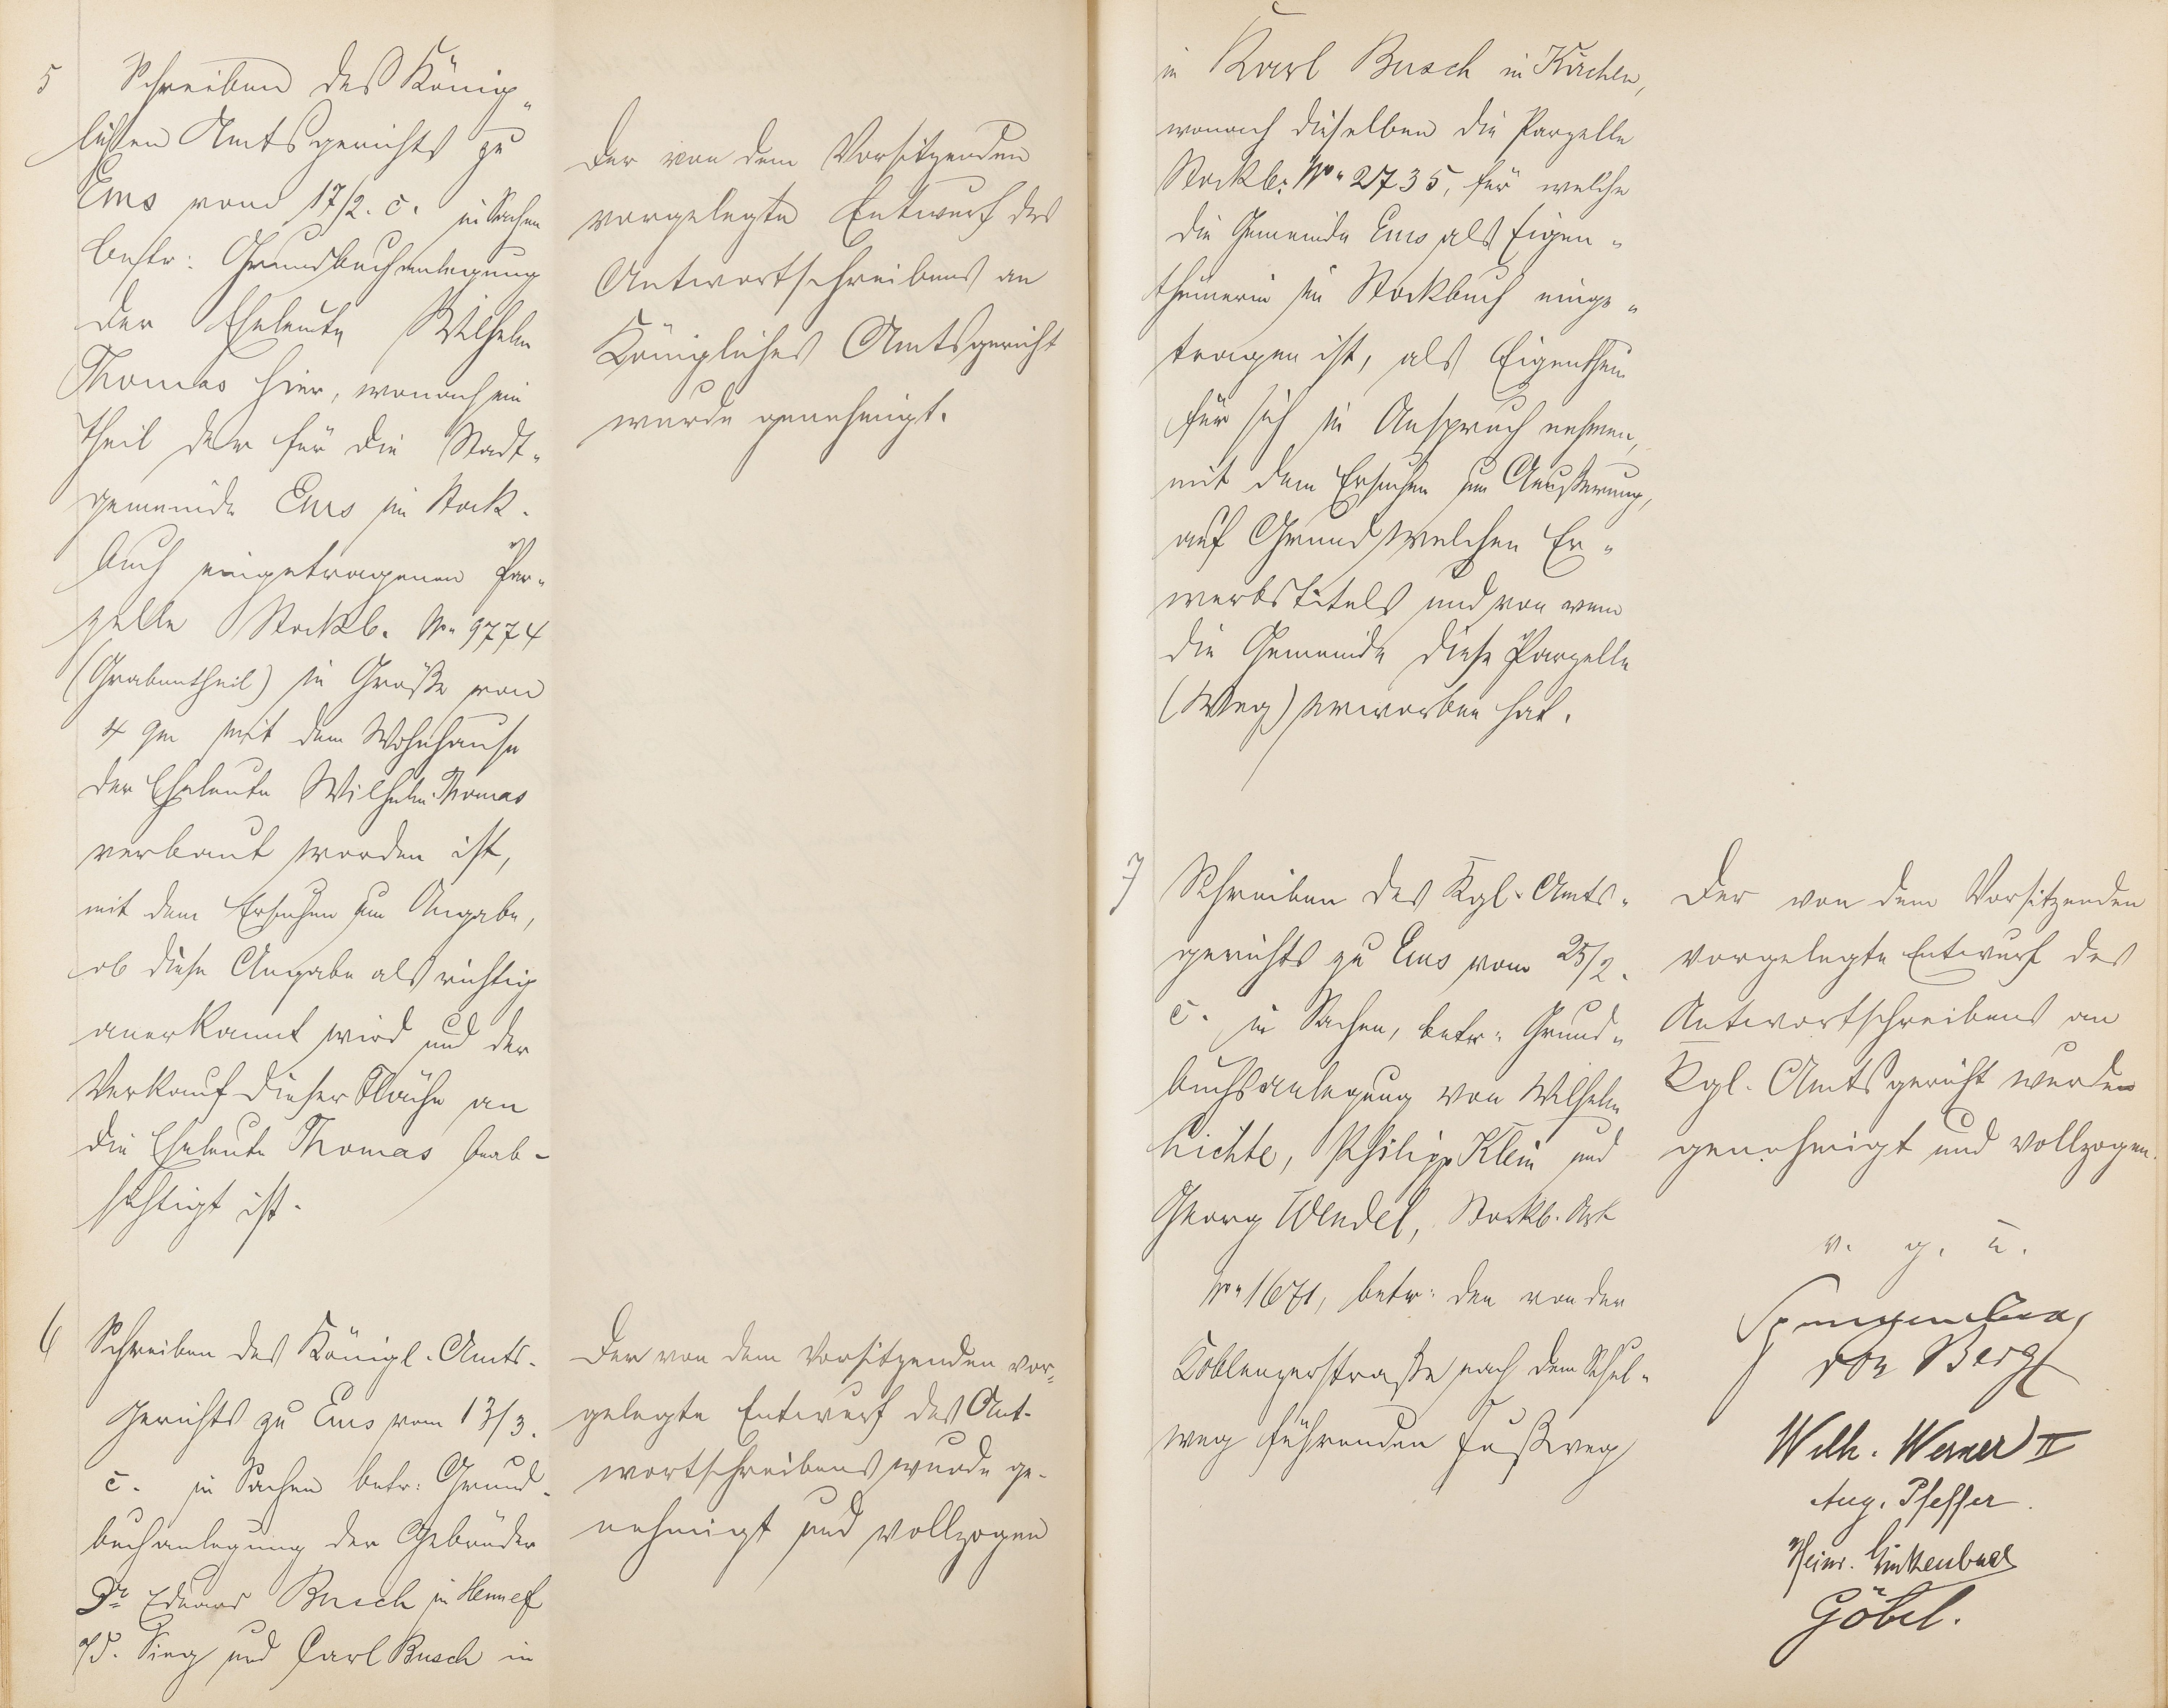 5 Schreiben des König„
lichen Amtsgerichts zu
Ems vom 17/2. c. in Sachen
betr: Grundbuchanlegung
der Eheleute Wilhelm
Thomas hier, wonach ein
Theil der für die Stadt„
gemeinde Ems im Stock-
buch eingetragenen Par„
zelle Stockb. No 9774
(Grabentheil) in Größe von
4 qm mit dem Wohnhause
der Eheleute Wilhelm Thomas
verbaut worden ist,
mit dem Ersuchen um Angabe,
ob diese Angabe als richtig
anerkannt wird und der
Verkauf dieser Fläche an
die Eheleute Thomas beab-
sichtigt ist.
Der von dem Vorsitzenden
vorgelegte Entwurf des
Antwortschreibens an
Königliches Amtsgericht
wurde genehmigt.
6 Schreiben des Königl. Amts-
Gerichts zu Ems vom 13/3.
c. in Sachen betr: Grund-
buchanlegung der Gebrüder
Dr Eduard Busch in Hennef
a/d. Sieg und Carl Busch in
Der von dem Vorsitzenden vor„
gelegte Entwurf des Ant-
wortschreibens wurde ge-
nehmigt und vollzogen
in Karl Busch in Kirchen,
wonach dieselben die Parzelle
Stockb. No 2735, für welche
die Gemeinde Ems als Eigen„
thümerin im Stockbuch einge„
tragen ist, als Eigenthum
für sich in Anspruch nehmen,
mit dem Ersuchen um Aeußerung,
auf Grund welchen Er„
werbstitels und von wem
die Gemeinde diese Parzelle
(Weg) erworben hat.
7 Schreiben des Kgl. Amts„
gerichts zu Ems vom 25/2.
c. in Sachen, betr. Grund„
buchsanlegung von Wilhelm
Lichte, Philipp Klein und
Georg Wendel, Stockb. Art
No 1671, betr: den von der
Koblenzerstraße nach dem Schul„
weg führenden Fußweg
Der von dem Vorsitzenden
vorgelegte Entwurf des
Antwortschreibens an
Kgl. Amtsgericht wurde
genehmigt und vollzogen.
v. g. u.
Spangenberg
von Berg
Wilh. Werner II
Aug. Pfeffer.
Heinr. Linkenbach
Göbel.